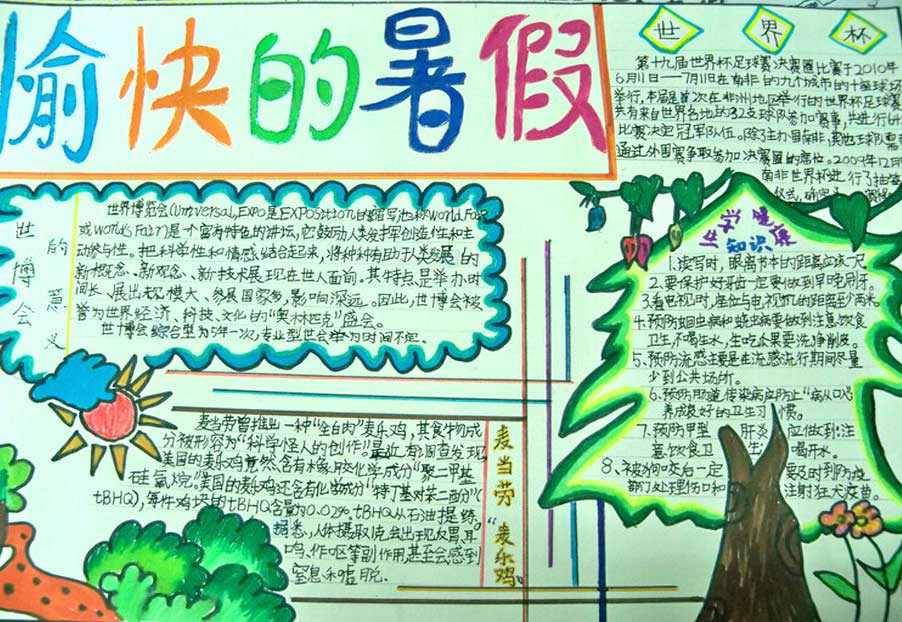 愉快的暑假
世界杯
第十九届世界杯足球赛决赛圈比赛于2010年
6月11日——7月11日在南非的九个城市的十座球场
举行,本届是首次在非洲地区举行的世界杯足球赛
共有来自世界各地的32支球队参加赛事,共进行64
比赛决定冠军队伍。除了主办国南非,其他球队需
通过外围赛争取参加决赛圈的席位。2009年12月
南非世界杯进行了抽签
仪式,确定了
世博会的意义
世界博览会(Universal,Expo是Exposition的缩写,也称World Fair
或World's Fair)是一个富有特色的讲坛,它鼓励人类发挥创造性和主
动参与性。把科学性和情感结合起来,将种种有助于人类发展的
新概念、新观念、新技术展现在世人面前。其特点是举办时
间长、展出规模大、参展国家多,影响深远。因此,世博会被
誉为世界经济、科技、文化的“奥林匹克”盛会。
世博会综合型为5年一次,专业型世会举办时间不定。
知识
1.读写时,眼离书本的距离应该一尺
2.要保护好牙齿一定要做到早晚刷牙。
3.看电视时,座位与电视机的距离至少两米。
4.预防蛔虫病和蛲虫病要做到注意饮食
卫生,不喝生水,生吃瓜果要洗净削皮。
5、预防流感主要是在流感流行期间尽量
少到公共场所。
6.预防肠道传染病应防止“病从口入”
养成良好的卫生习惯。
7.预防甲型肝炎应做到:注
意饮食卫生喝开水。
8、被狗咬后一定要及时到防疫
部门处理伤口和注射狂犬疫苗。
麦当劳“麦乐鸡”
麦当劳曾推出一种“全白肉”麦乐鸡,其食物成
分被形容为“科学怪人的创作”最近有调查发现
美国的麦乐鸡竟然含有木橡胶化学成分“聚二甲基
硅氧烷。”美国的麦乐鸡还含有化学成分“特丁基对苯二酚”(
tBHQ),每件鸡块的tBHQ含量为0.02%。tBHQ从石油提练。
据悉,人体摄取1克,会出现反胃、耳
鸣、作呕等副作用甚至会感到
窒息和虚脱.